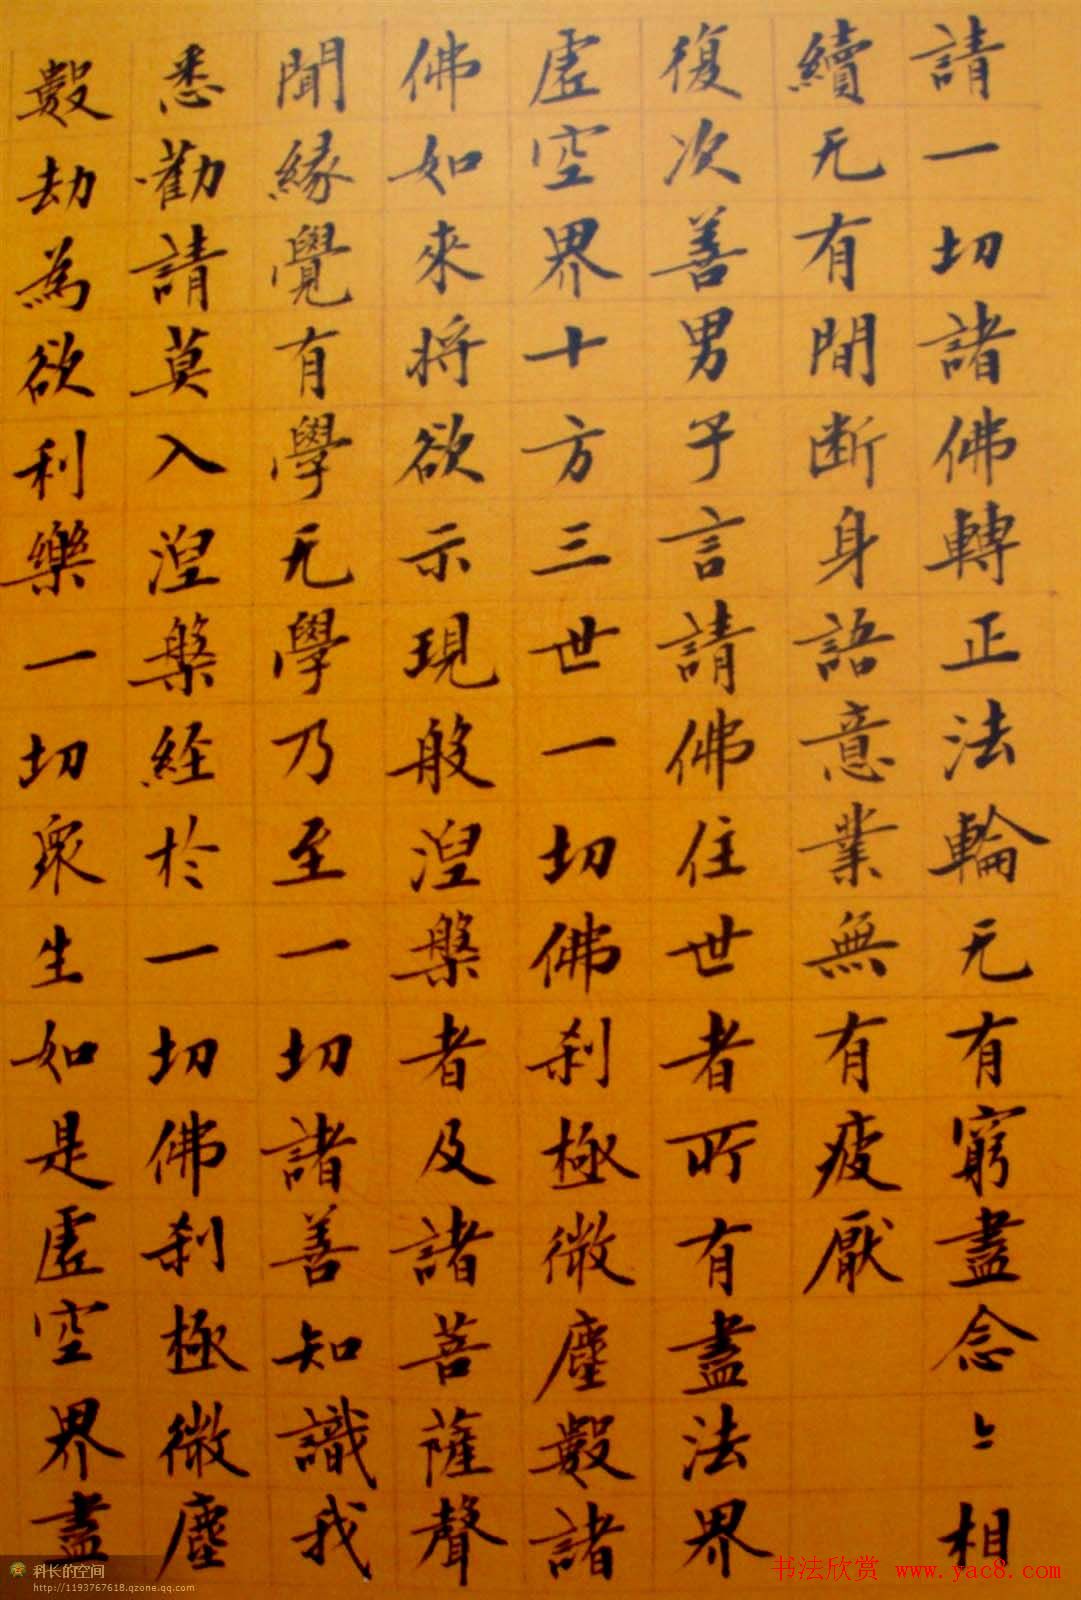 請一切諸佛轉正法輪无有窮盡念々相
續无有間断身語意業無有疲厭
復次善男子言請佛住世者所有盡法界
虛空界十方三世一切佛刹極微塵數諸
佛如來將欲示現般涅槃者及諸菩薩聲
聞緣覺有學无學乃至一切諸善知識我
悉勸請莫入涅槃経於一切佛刹極微塵
數劫為欲利樂一切眾生如是虛空界盡
科长的空间
http://1193767618.qzone.qq.com
书法欣赏 www.yac8.com